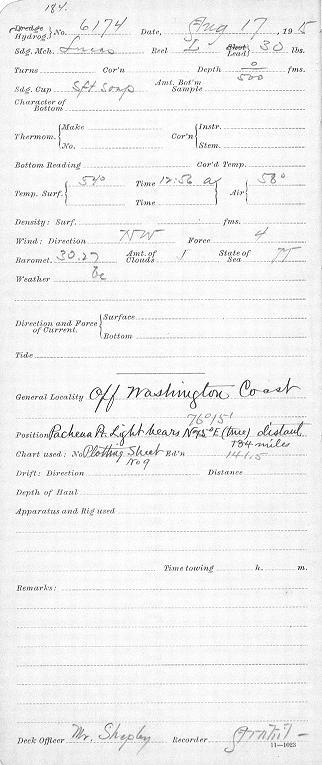 184.
Dredge
Hydrog. No. 6174 Date, Aug 17, 1915
Sdg. Mch. Lucas Reel L Shot Lead 30 lbs.
Turns Cor'n Depth 0/500 fms.
Sdg. Cup Sft Soap Amt. Bot'm Sample
Character of Bottom
Thermom. Make No. Cor'n Instr. Stem.
Bottom Reading Cor'd Temp.
Temp. Surf. 54° Time 12:56 a Air 58°
Time
Density: Surf. fms.
Wind: Direction NW Force 4
Baromet. 30.27 Amt. of Clouds 1 State of Sea M
Weather bc
Direction and Force of Current. Surface
Bottom
Tide
General Locality Off Washington Coast
76°15'
Position Pachena Pt. Light bears N 75° E (true) distant
134 miles
Chart used: No. Plotting Sheet Ed'n 141.5
No 9
Drift: Direction Distance
Depth of Haul
Apparatus and Rig used
Time towing h. m.
Remarks:
Deck Officer Mr. Shepley Recorder
11—1023